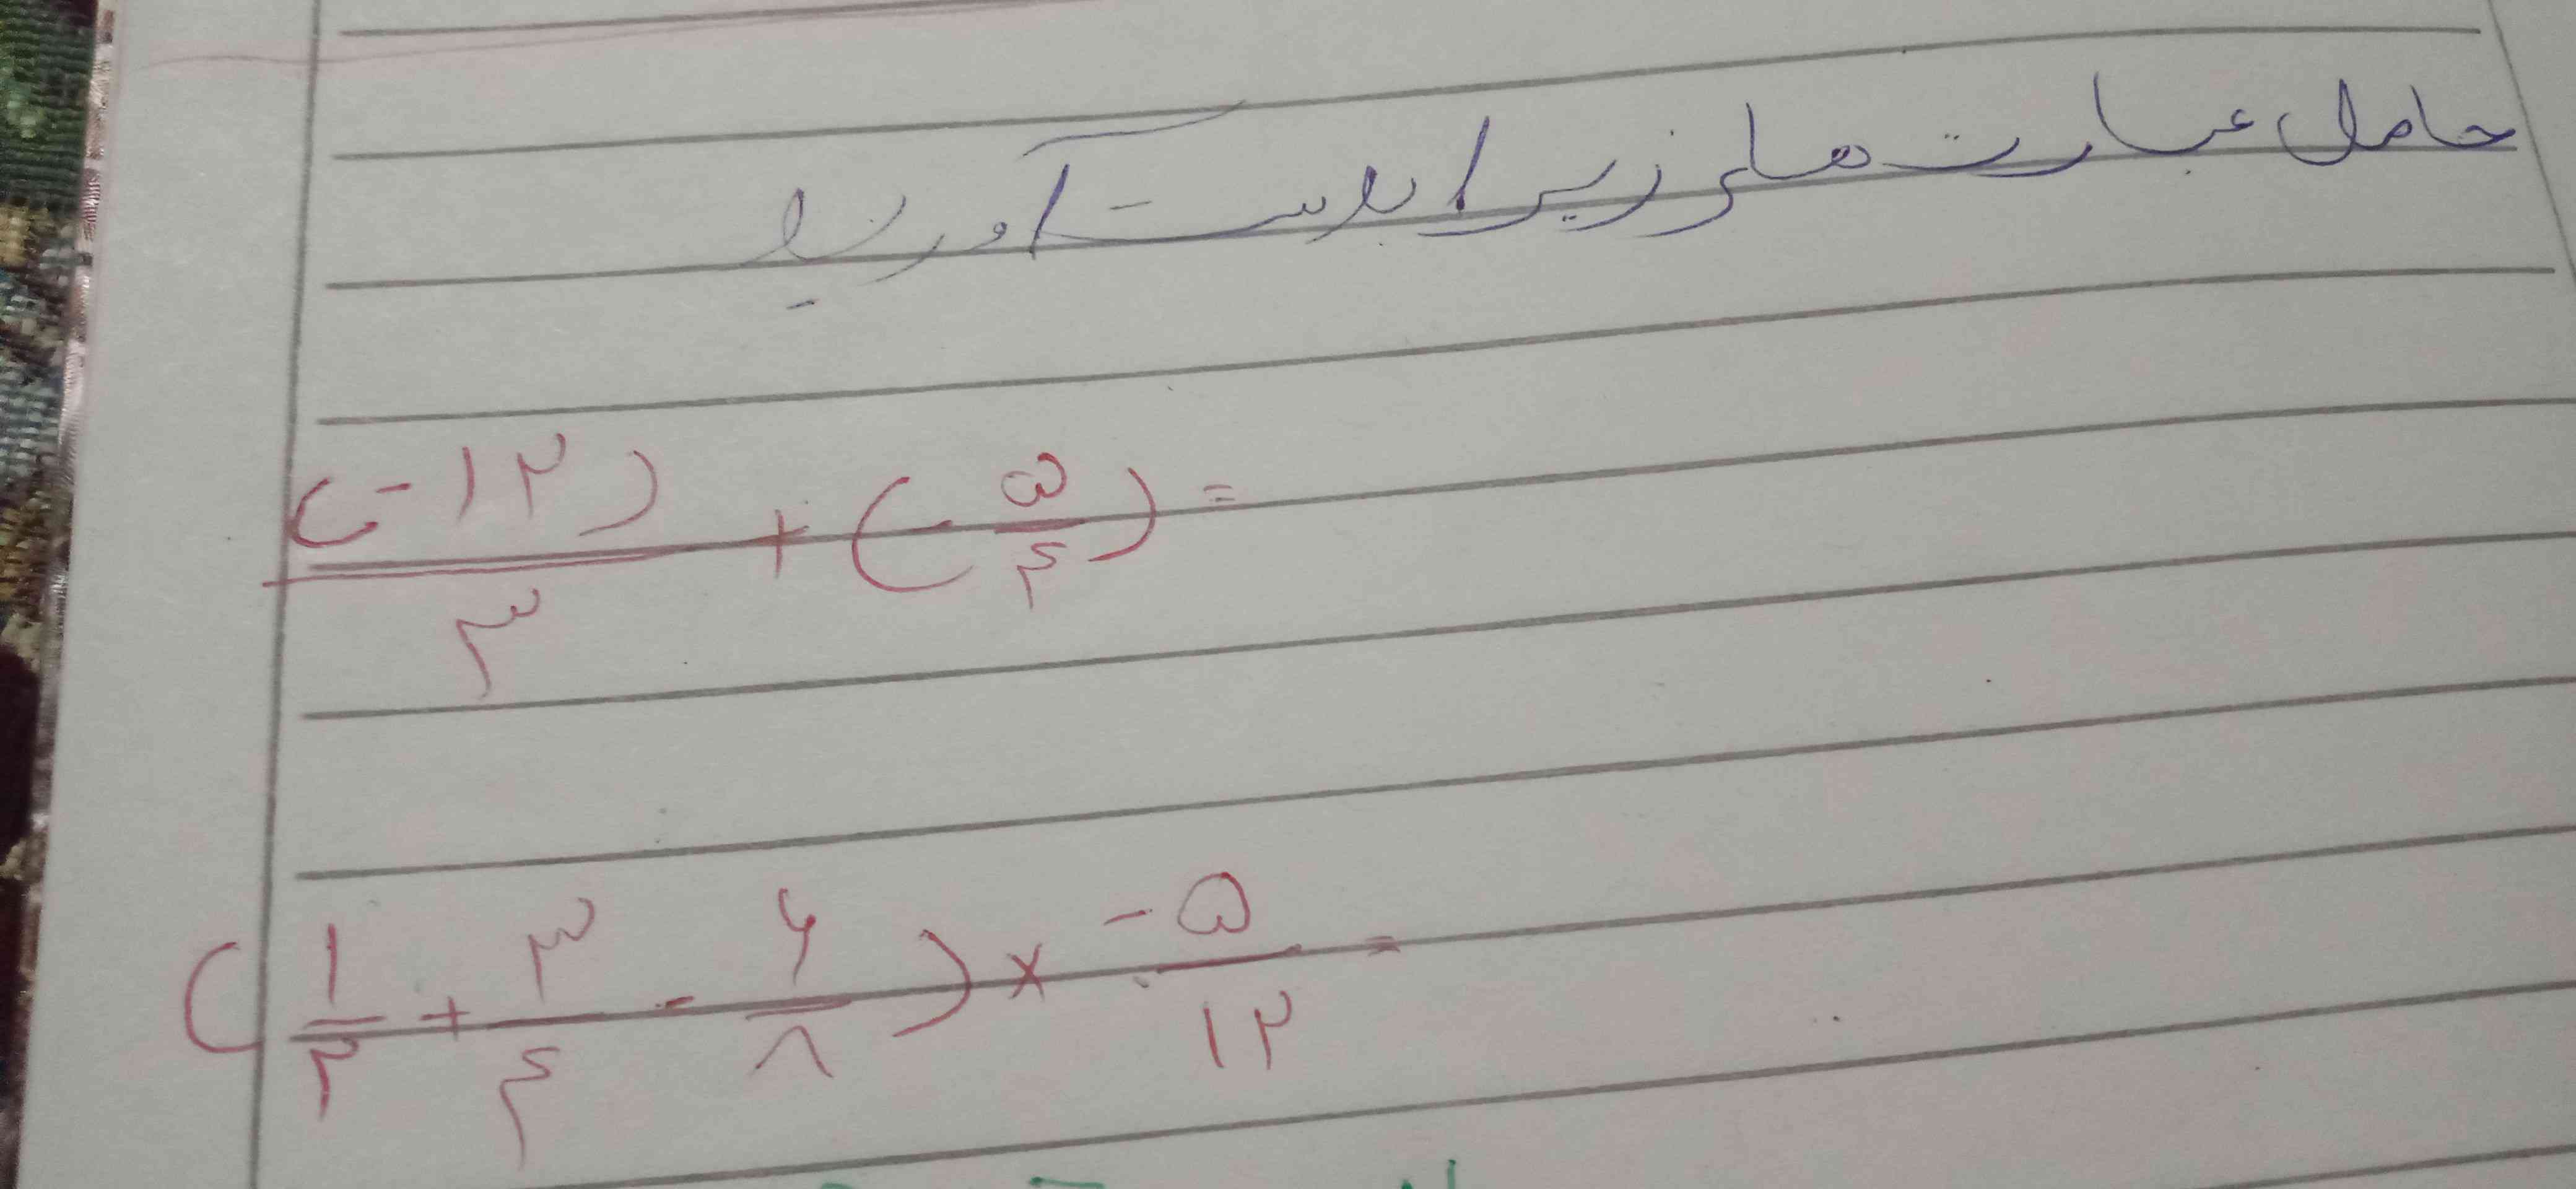 حاصل عبارت های زیر را بدست آورید
(-۱۲)/۳ + (-۵/۴) =
(۱/۲ + ۳/۴ - ۶/۸) × -۵/۱۲ =